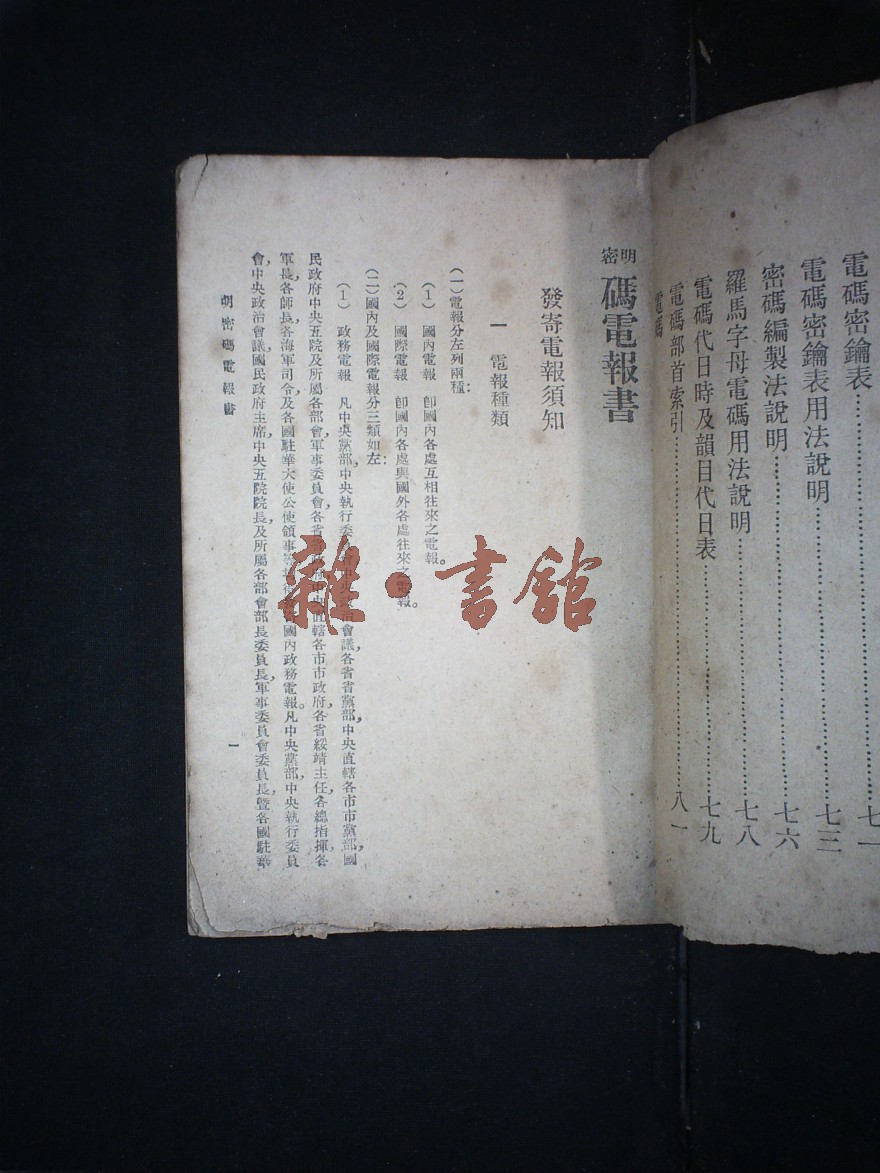 電碼密鑰表……七一
電碼密鑰表用法說明……七三
密碼編製法說明……七六
羅馬字母電碼用法說明……七八
電碼代日時及韻目代日表……七九
電碼部首索引……八一
電碼
明密碼電報書
發寄電報須知
一 電報種類
(一)電報分左列兩種:
(1) 國內電報 卽國內各處互相往來之電報。
(2) 國際電報 卽國內各處與國外各處往來之電報。
(二)國內及國際電報分三類如左:
(1) 政務電報 凡中央黨部,中央執行委 會議,各省省黨部,中央直轄各市市黨部,國
民政府中央五院及所屬各部會,軍事委員會,各省省 直轄各市市政府,各省綏靖主任,各總指揮各
軍長,各師長,各海軍司令,及各國駐華大使公使領事等 國內政務電報。凡中央黨部,中央執行委員
會,中央政治會議,國民政府主席,中央五院院長,及所屬各部會部長委員長,軍事委員會委員長,暨各國駐華
明密碼電報書
一
雜·書館